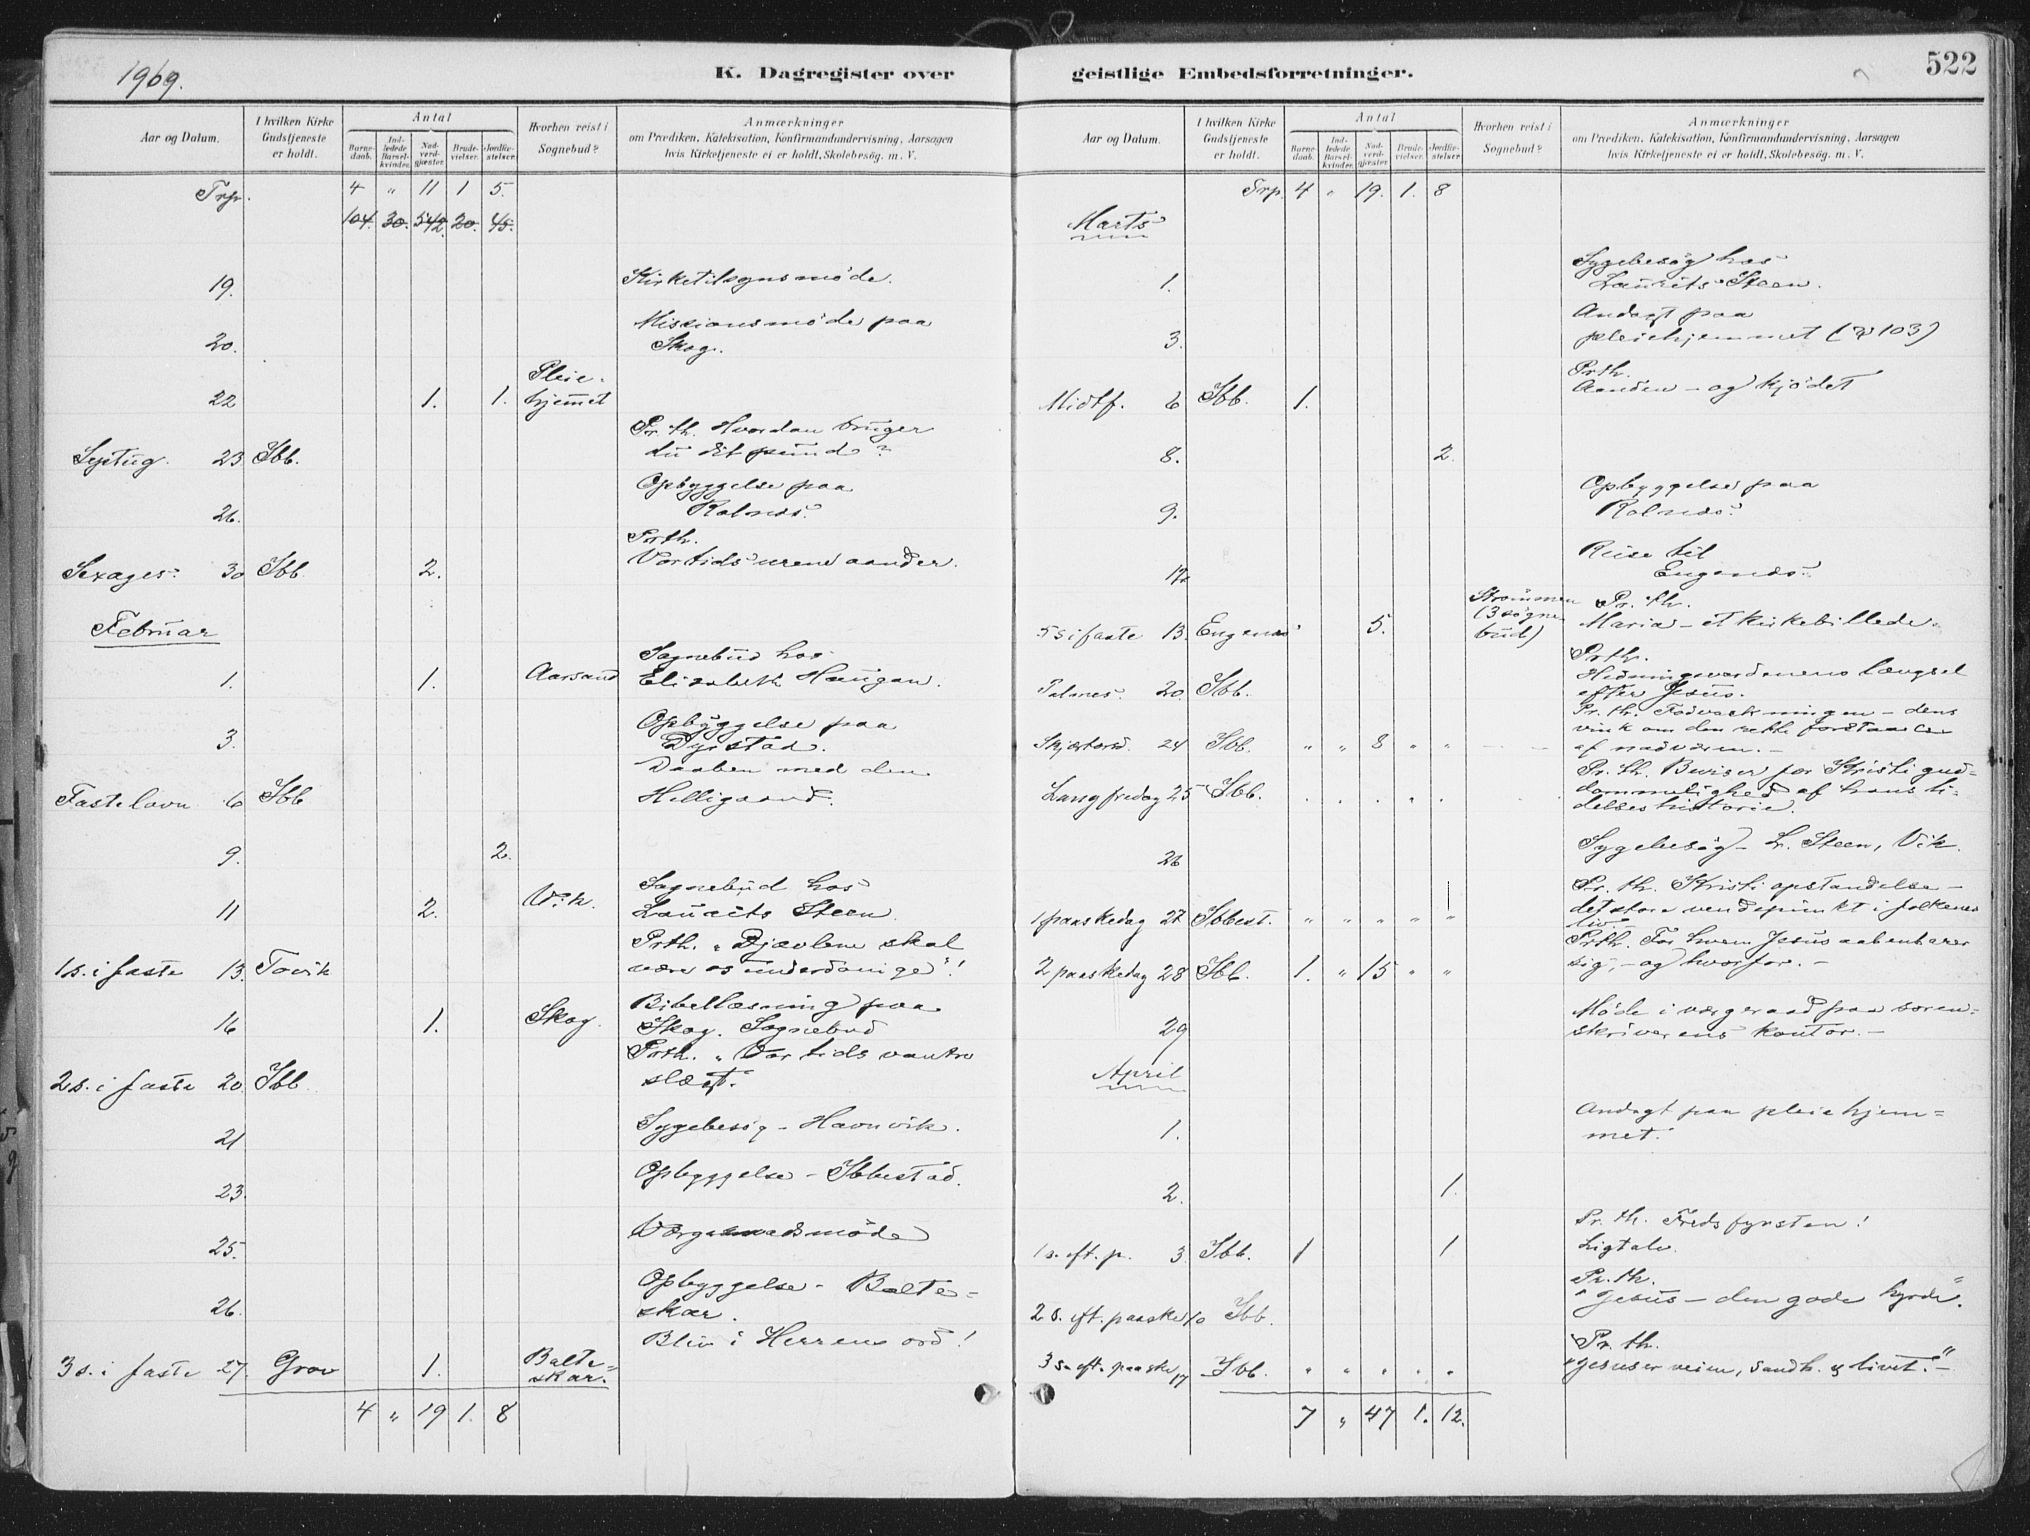 1909.
K. Dagregister over
Aar og Datum.
I hvilken Kirke Gudstjeneste er holdt.
Antal
Barnedaab.
Indledede Barselkvinder.
Nadverdgjæster.
Brudevielser.
Jordfæstelser.
Hvorhen reist i Sognebud?
Anmærkninger
om Prædiken, Katekisation, Konfirmandundervisning, Aarsagen
hvis Kirketjeneste ei er holdt, Skolebesøg. m. V.
Trp. 4 " 11 1 5.
104. 30. 542. 20. 45.
19. Kirketilsynsmöde.
20. Missionsmöde paa
Skog.
22 1. 1. Pleie-
hjemmet
Pr. th. Hvordan bruger
Septug. 23 Ibb. du dit pund?
Opbyggelse paa
26. Rolnes.
Prth.
Sexages. 30 Ibb 2. Vor tids urene aander.
Februar
Sognebud hos
1. 1. Aarsand Elisabeth Haugan.
Opbyggelse paa
3. Dyrstad.
Daaben med den
Fastelavn 6 Ibb Helligaand.
9. 2.
Sognebud hos
11 2. Vik. Laurits Steen.
Prth. "Djævlene skal
1 s. i faste 13. Tovik være os underdanige"!
Bibellæsning paa
16 1. Skog. Skog. Sognebud
Prth. "Vor tids vantro
2 s. i faste 20. Ibb. slægt.
21 Sygebesög - Havnvik.
23. Opbyggelse - Ibbestad.
25. Værgeraadsmöde
Opbyggelse - Balte-
26. skar.
Bliv i Herrens ord!
3 s. i faste 27. Grov 1. Balte-
skar.
4 " 19 1. 8
geistlige Embedsforretninger.
522
Aar og Datum.
I hvilken Kirke Gudstjeneste er holdt.
Antal
Barnedaab.
Indledede Barselkvinder.
Nadverdgjæster.
Brudevielser.
Jordfæstelser.
Hvorhen reist i Sognebud?
Anmærkninger
om Prædiken, Katekisation, Konfirmandundervisning, Aarsagen
hvis Kirketjeneste ei er holdt, Skolebesøg. m. V.
Trp. 4 " 19. 1. 8
Marts
Sygebesög hos
1. Laurits Steen.
Andagt paa
3. pleiehjemmet ( 103)
Prth.
Midtf. 6 Ibb. 1. Aanden - og kjödet
8. 2.
Opbyggelse paa
9. Rolnes.
Reise til
12. Engenes.
Strømmen
(3 sogne
bud)
Pr. th.
5 s i faste 13. Engenes 5. Maria - et kirkebillede.
Prth.
Hedningeverdenens længsel
Palmes. 20. Ibb. efter Jesus.
Pr. th. Fodvaskningen - dens
vink om den rette forstaaelse
Skjærtorsd. 24 Ibb. " " 8 " " af nadveren. -
Pr. th. Beviser for Kristi gud-
Langfredag 25 Ibb. dommelighed af hans li-
delseshistorie.
26 Sygebesög - L. Steen, Vik.
Pr. th. Kristi opstandelse -
1 paaskedag 27 Ibbest. " " " " " det store vendepunkt i folkenes
liv. -
Prth. For hvem Jesus aabenbarer
2 paaskedag 28 Ibb. 1. " 15 " " sig, - og hvorfor. -
Möde i værgeraad paa soren-
29 skriverens kontor. -
April
Andagt paa pleiehjem-
1. met.
2. 1.
Pr. th. Fredsfyrsten!
1 s. eft. p. 3 Ibb. 1 1 Ligtale.
Pr. th.
2 s. eft. paaske 10 Ibb. "Jesus - den gode hyrde".
Pr. th.
3 s. eft. paaske 17 Ibb. " " " " " "Jesus er veien, sandh. og livet." -
7 " 47 1. 12.